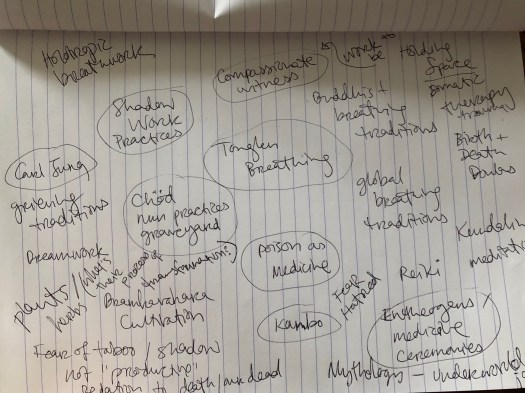 Holotropic
breathwork
Compassionate
witness
work
be
Holding
Space
somatic
therapy
trauma
Shadow
Work
Practices
Buddhist
breathing
traditions
Tonglen
Breathing
Birth +
Death
Doulas
Carl Jung
grieving
traditions
Chöd
nun practices
graveyard
global
breathing
traditions
Kundalini
meditation
Dreamwork
plants /
herbs
(what's
their process of
transformation?)
poison as
medicine
Reiki
Fear
Hatred
Bramhavahara
Cultivation
Kambo
Entheogens /
medicine
ceremonies
Fear of taboo / shadow
not "productive"
Relation to death / our dead
Mythology - underworld